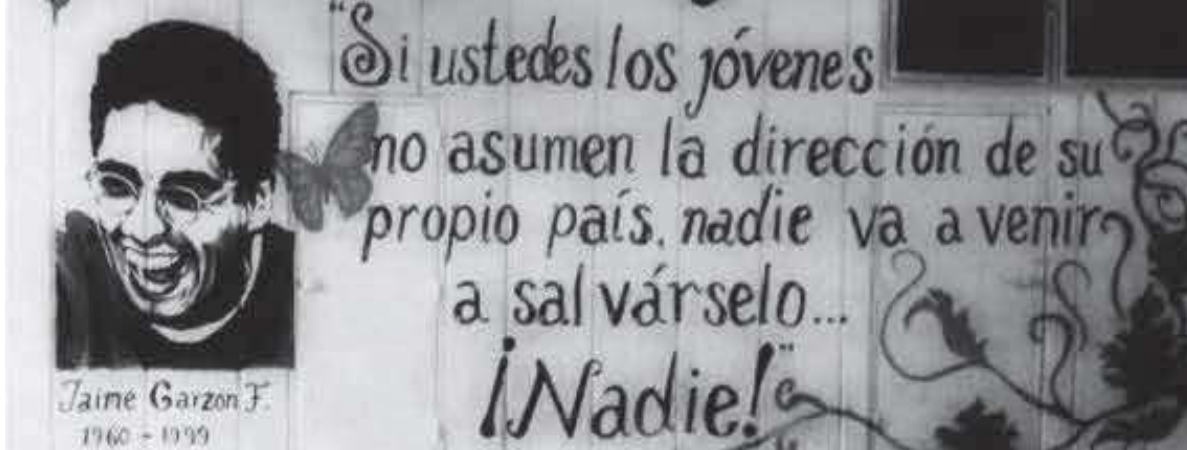 "Si ustedes los jóvenes
no asumen la dirección de su
propio país, nadie va a venir
a salvárselo...
¡Nadie!"
Jaime Garzon F.
1960 - 1999